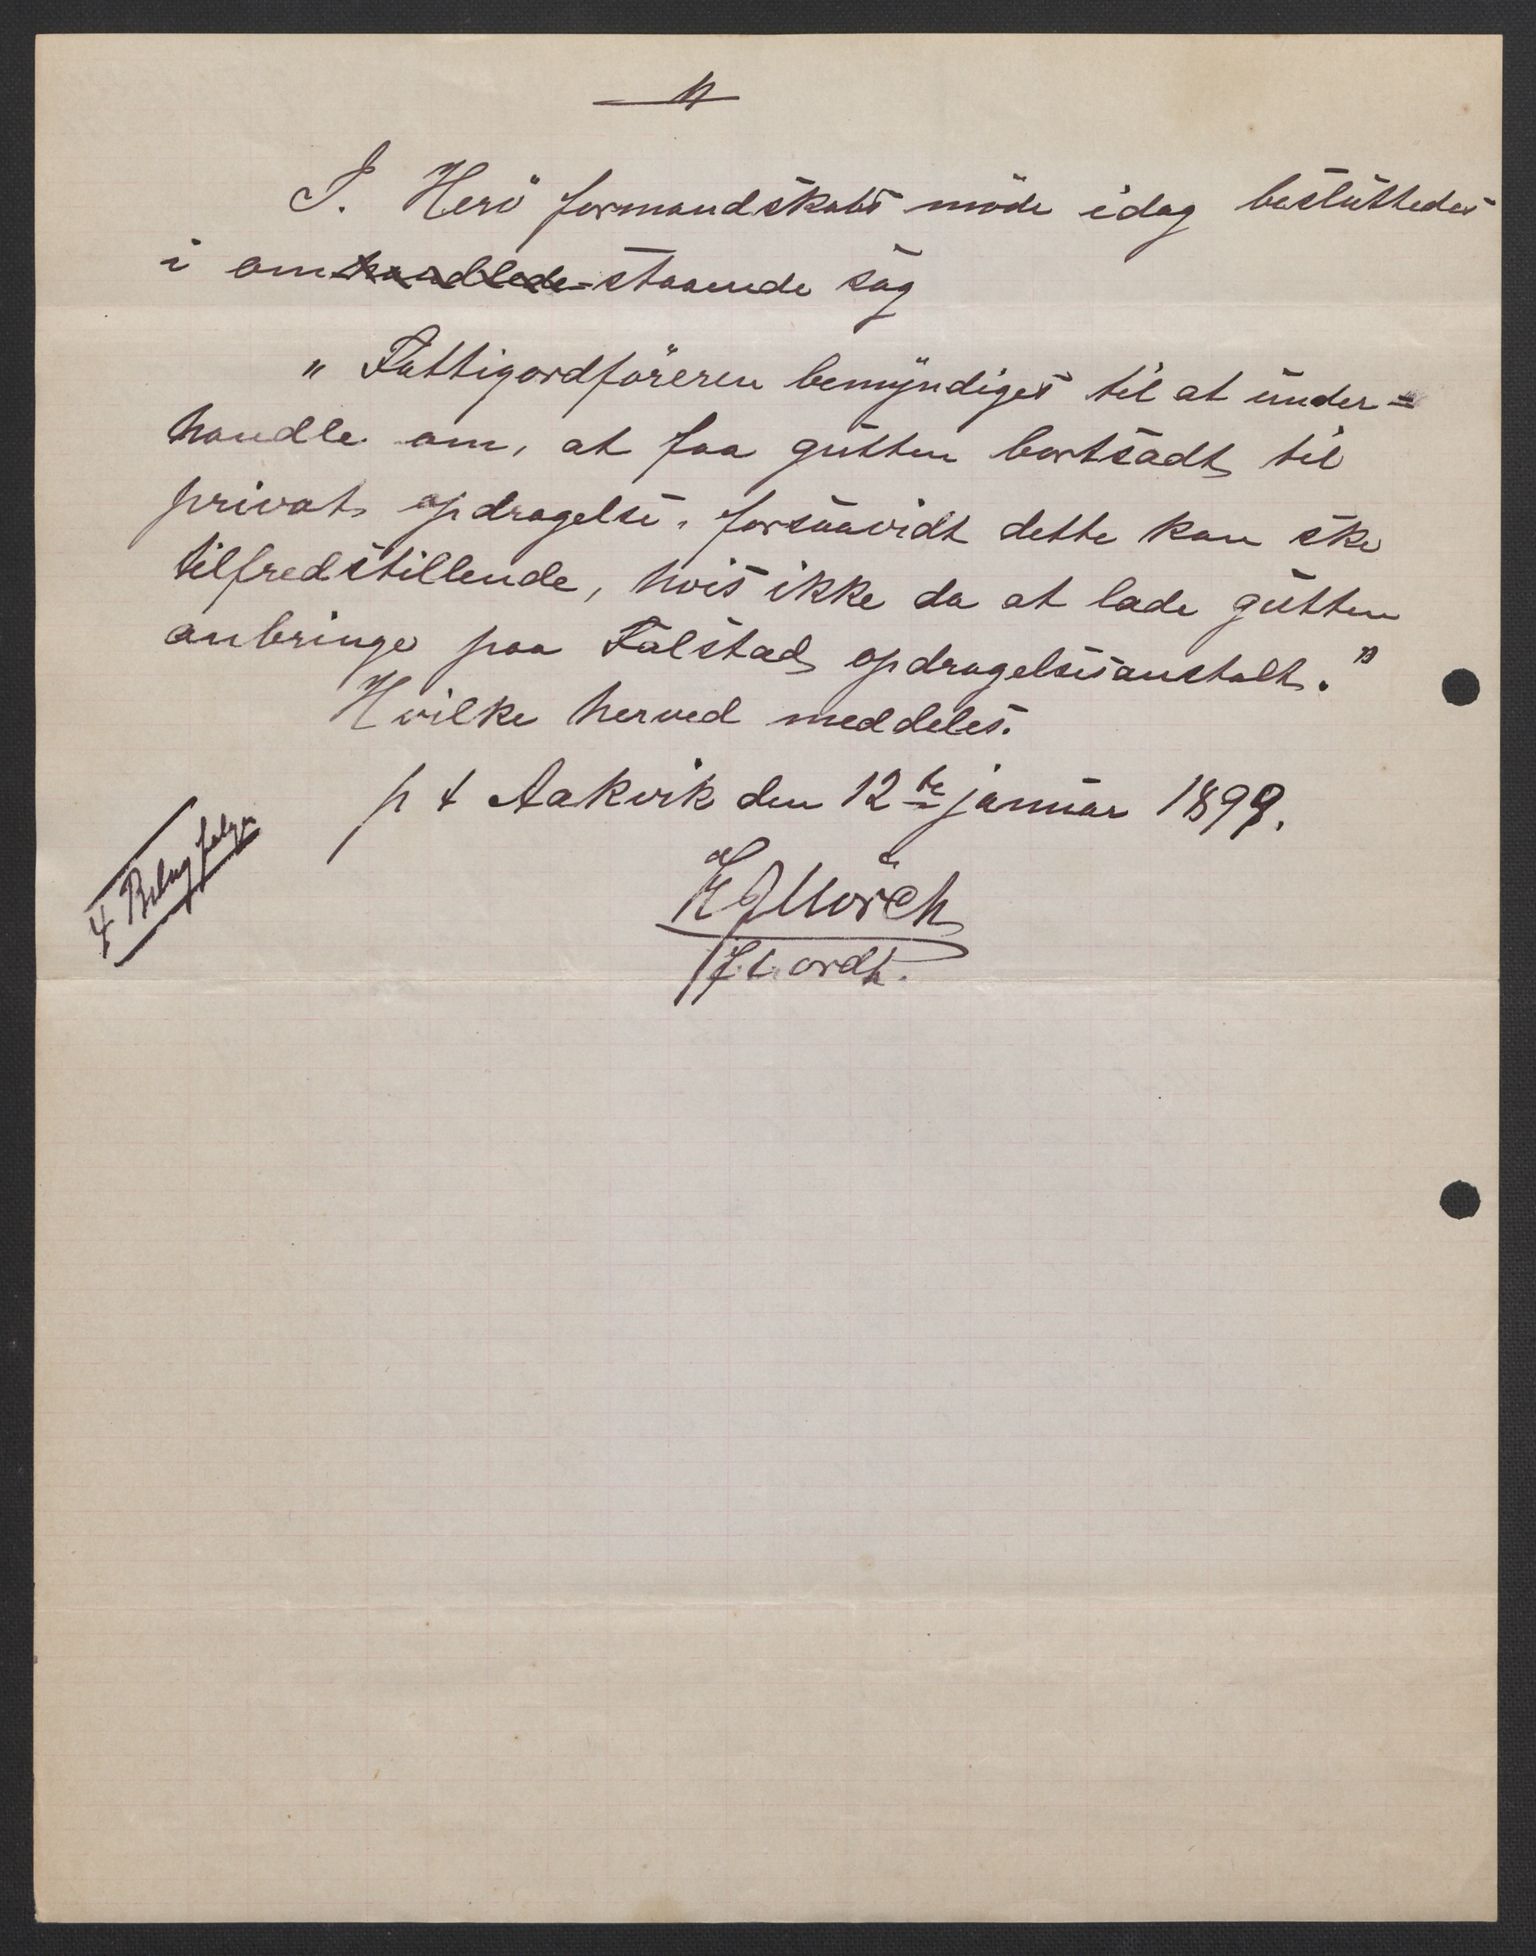 I. Herö formandskabs möde idag besluttedes
i om handlede-staaende sag
"Fattigordföreren bemyndiges til at under=
handle om, at faa gutten bortsadt til
privat opdragelse, forsaavidt dette kan ske
tilfredstillende, hvis ikke da at lade gutten
anbringe paa Falstad opdragelsesanstalt."
Hvilke herved meddeles.
p t Aakvik den 12te januar 1899.
4 Bilag følger
Mörch
ordf.